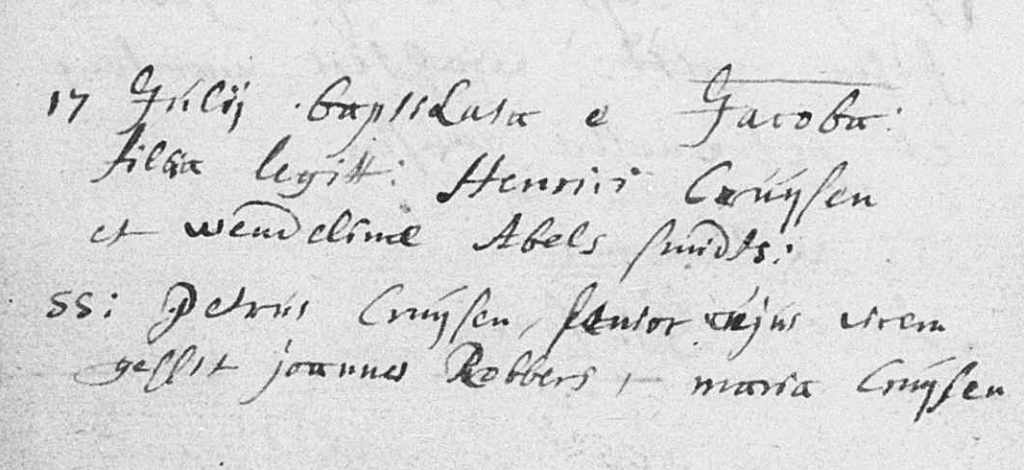 17 Julij baptisata e Jacoba.
filia legitt: Henrici Cruijsen
et wendelinæ Abels smidts:
SS: Petrus Cruijsen, senior cujus vicem
gessit joannes Robbers, + maria Cruijsen